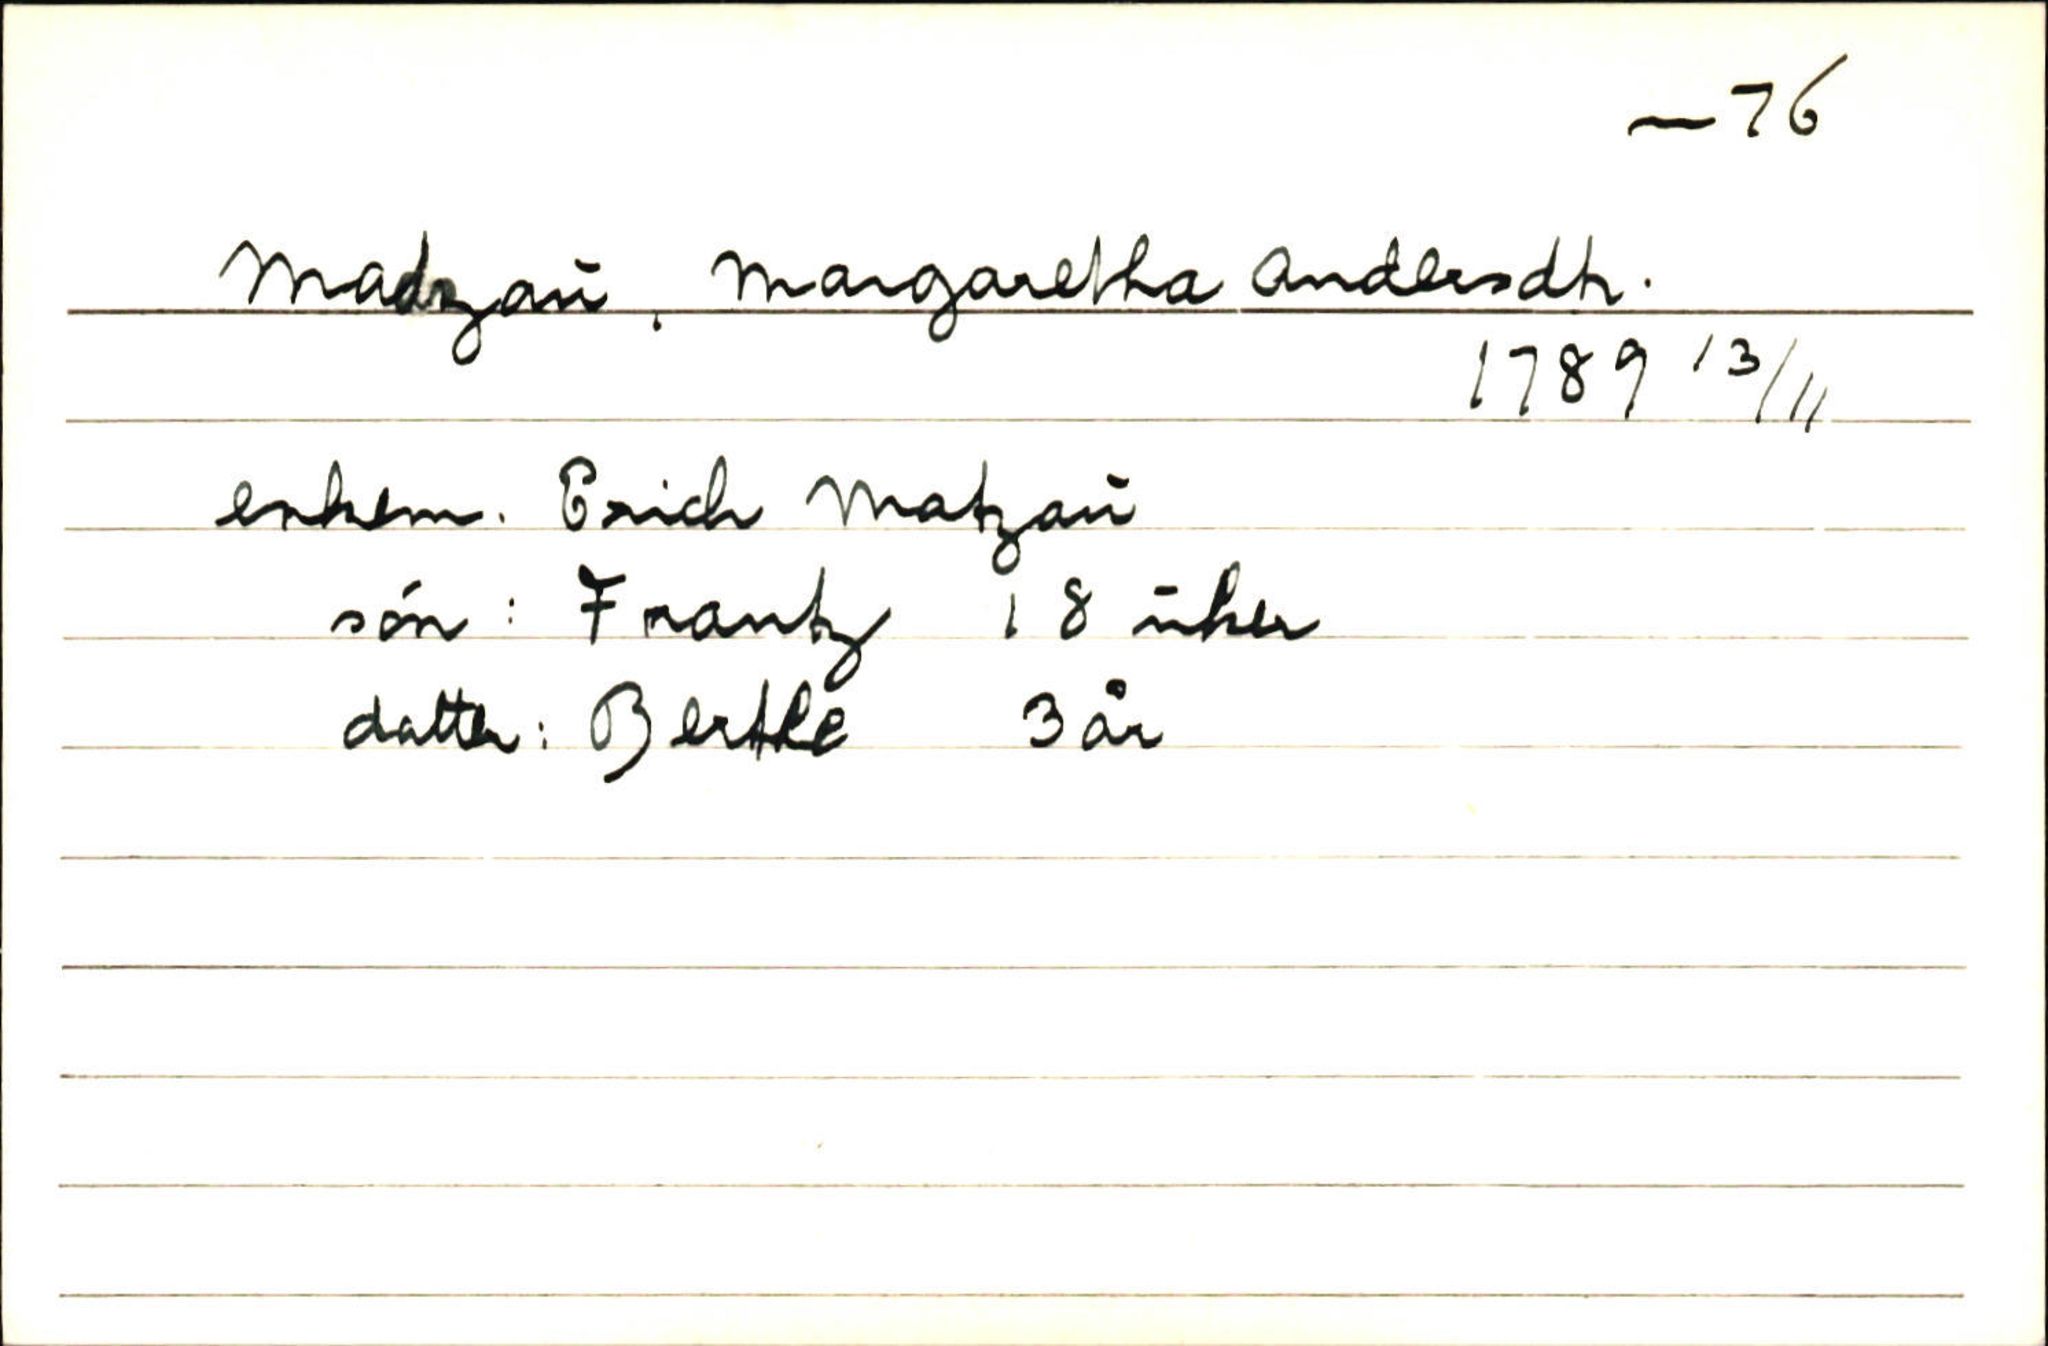 — 76
Madzaŭ, Margaretha Andersdtr.
1789 13/11
enkem. Erich Matzaŭ
són: Frantz 18 ŭker
datter: Berthe 3 år